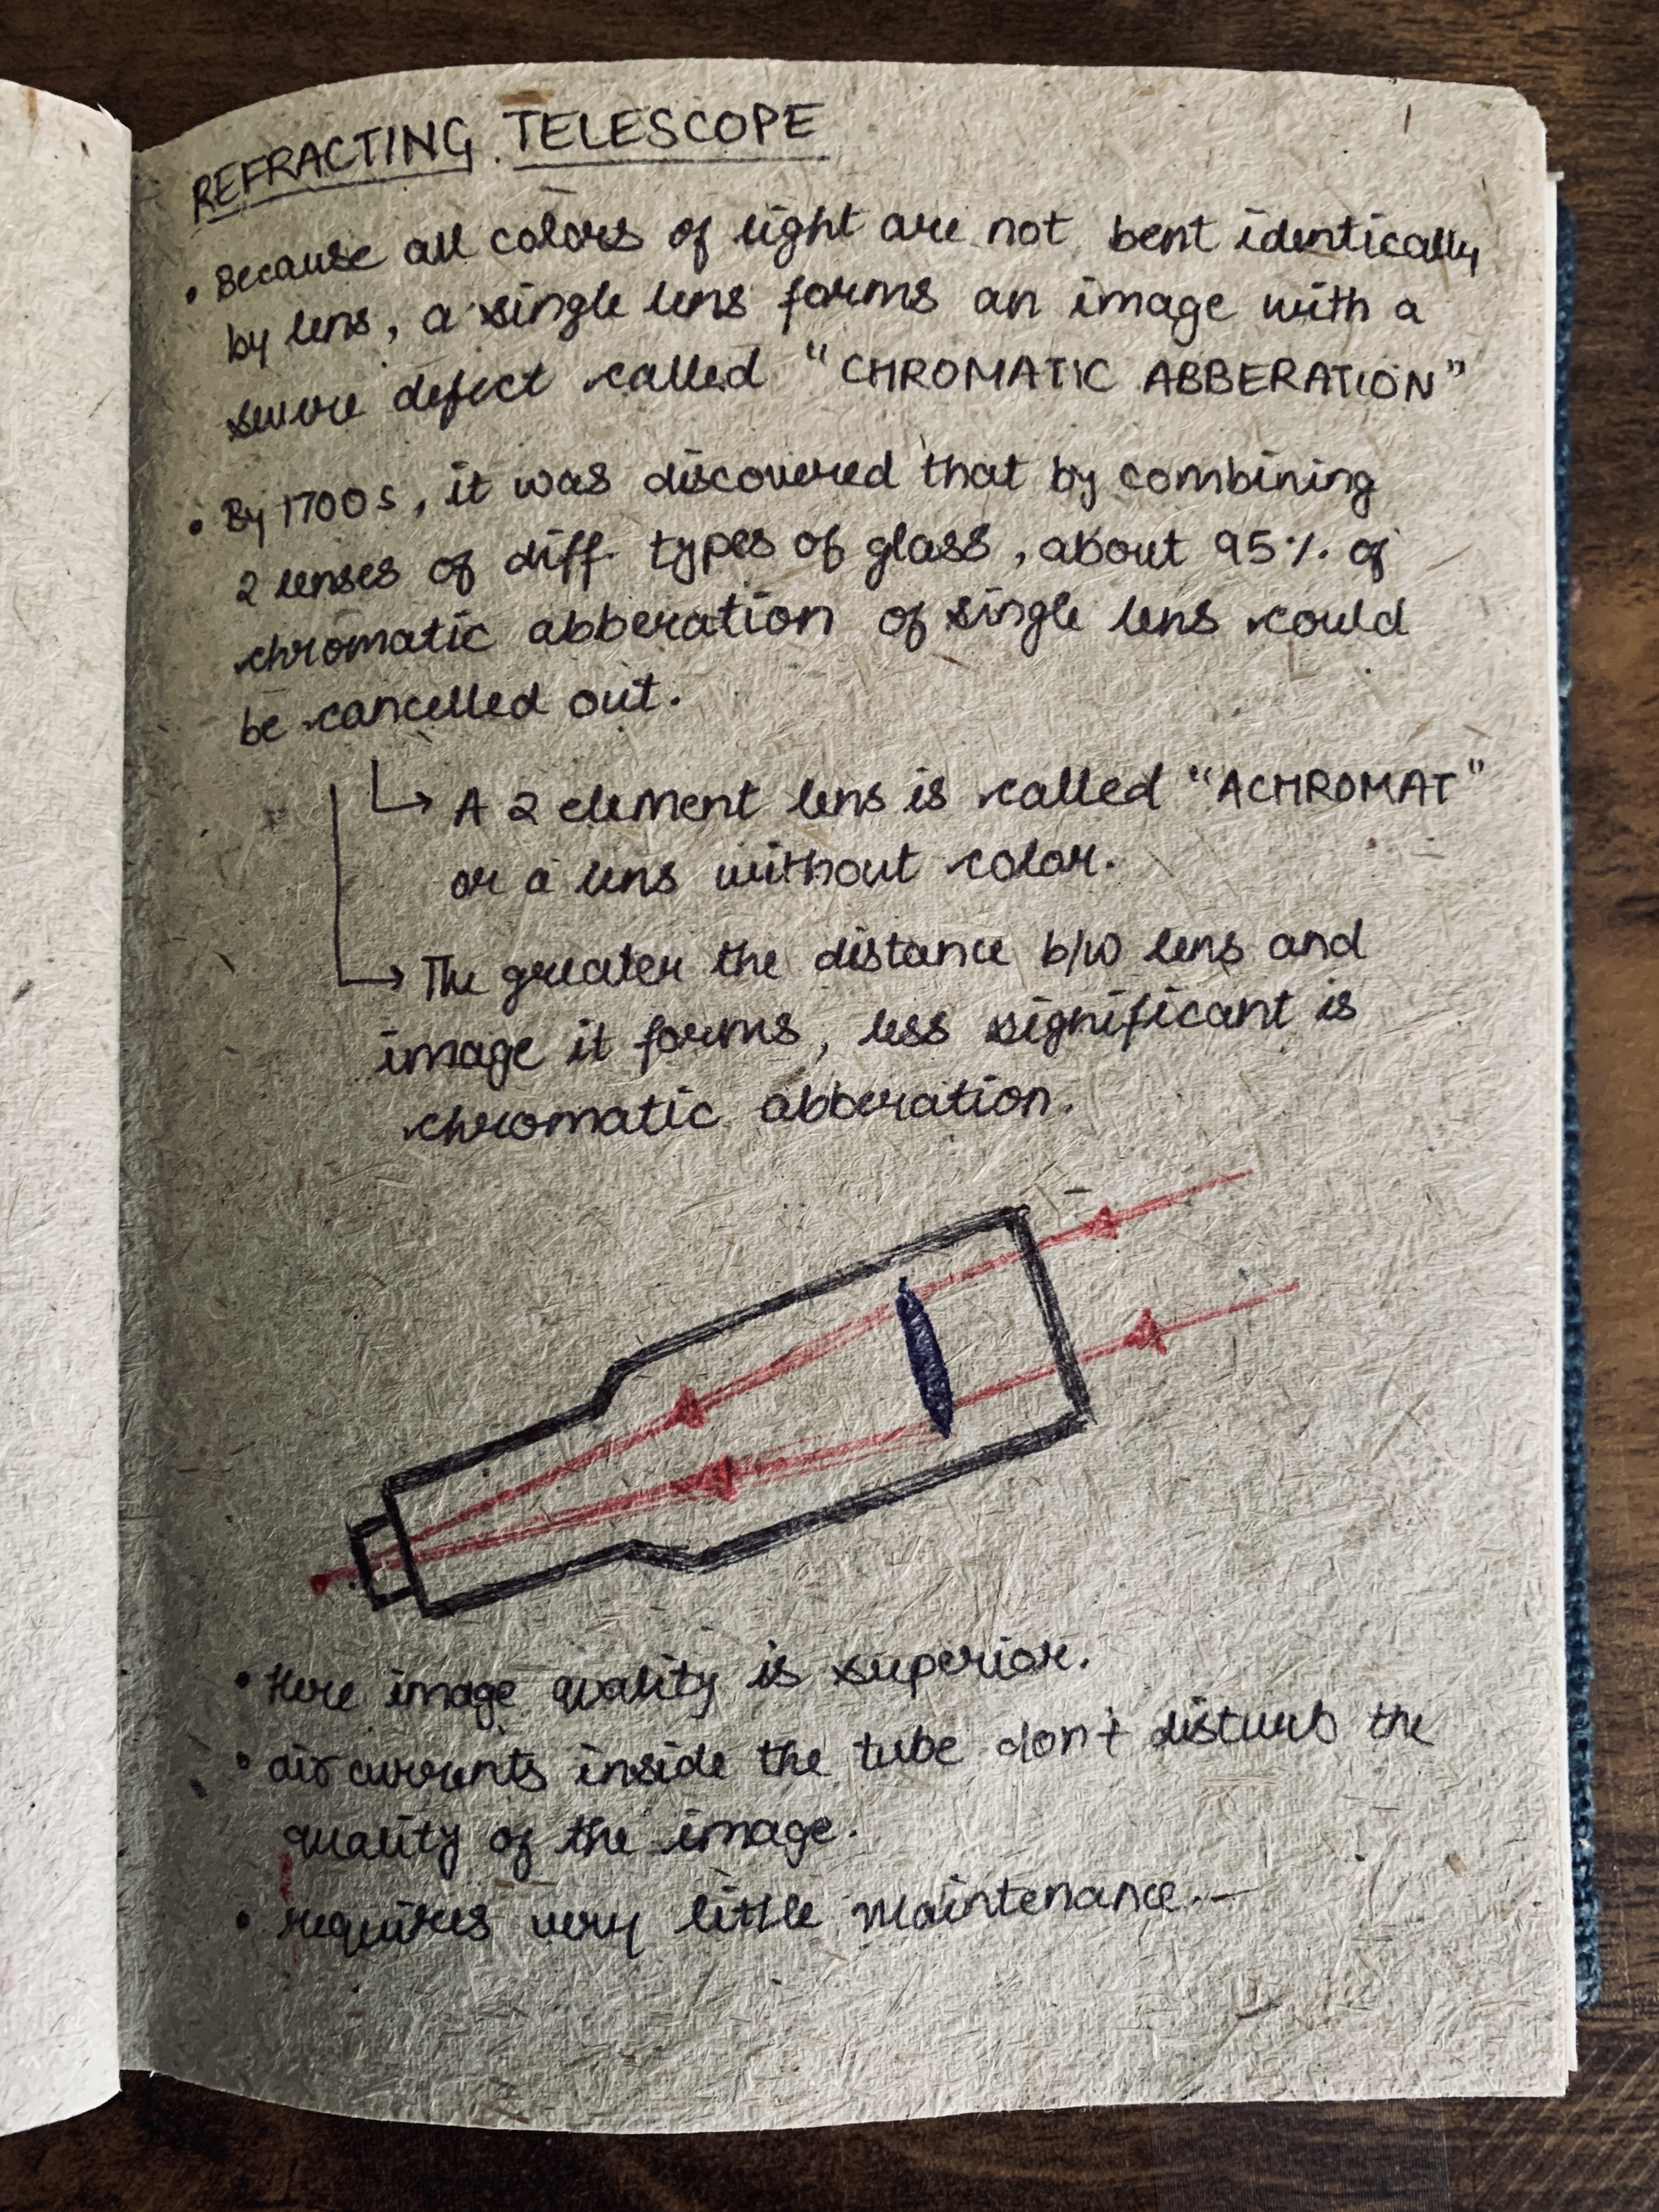 REFRACTING TELESCOPE
• Because all colors of light are not bent identically
by lens, a single lens forms an image with a
severe defect called "CHROMATIC ABBERATION"
• By 1700s, it was discovered that by combining
2 lenses of diff. types of glass, about 95% of
chromatic abberation of single lens could
be cancelled out.
↳ A 2 element lens is called "ACHROMAT"
or a lens without color.
↳ The greater the distance b/w lens and
image it forms, less significant is
chromatic abberation.
• Here image quality is superior.
• air currents inside the tube don't disturb the
quality of the image.
• requires very little maintenance.